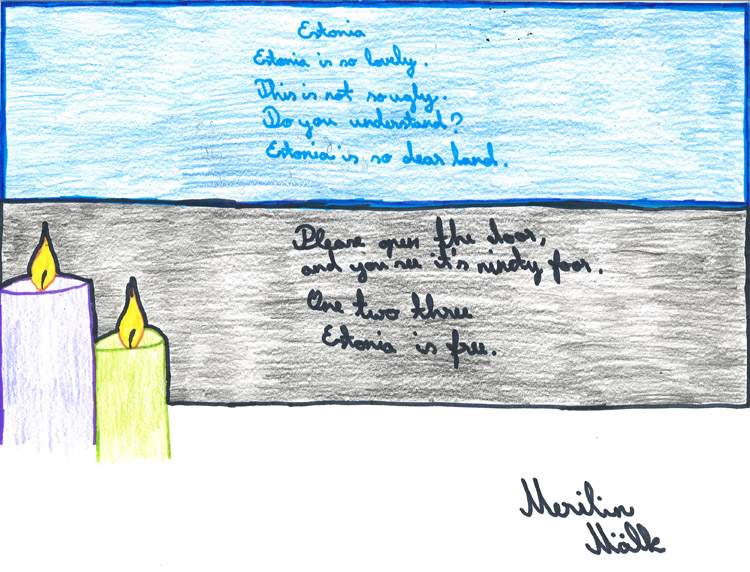 Estonia
Estonia is so lovely.
This is not so ugly.
Do you understand?
Estonia is so dear land.
Please open the door,
and you see it's ninety foor.
One two three
Estonia is free.
Merilin
Mälk